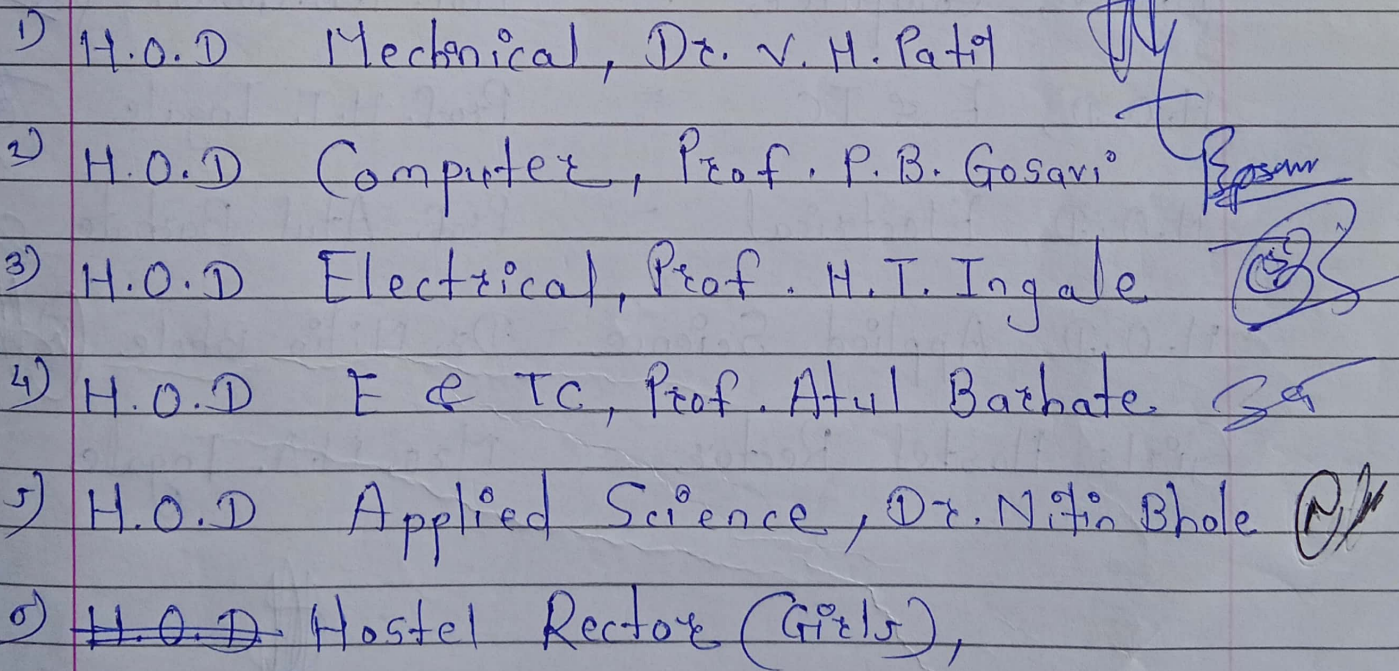 1) H.O.D Mechnical, Dr. V. H. Patil
2) H.O.D Computer, Prof. P. B. Gosavi
3) H.O.D Electrical, Prof. H. T. Ingale
4) H.O.D E & TC, Prof. Atul Barhate
5) H.O.D Applied Science, Dr. Nitin Bhole
6) H.O.D Hostel Rector (Girls),